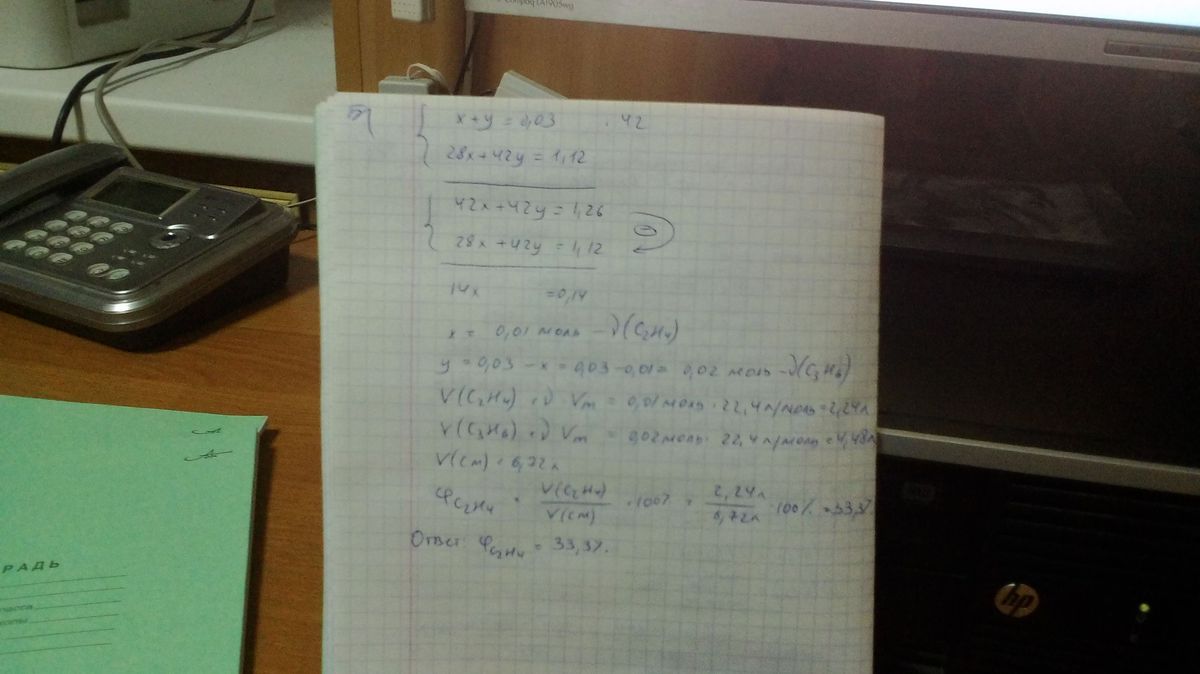 Compaq LA1905wg
5)
x+y = 0,03 · 42
28x+42y = 1,12
42x+42y = 1,26
28x+42y = 1,12
14x = 0,14
x = 0,01 моль – ν(C₂H₄)
y = 0,03 – x = 0,03 – 0,01 = 0,02 моль – ν(C₃H₆)
V(C₂H₄) = ν · Vm = 0,01 моль · 22,4 л/моль = 2,24 л
V(C₃H₆) = ν · Vm = 0,02 моль · 22,4 л/моль = 4,48 л
V(см) = 6,72 л
φC₂H₄ = V(C₂H₄)/V(см) · 100% = 2,24л/6,72л · 100% = 33,3%
Ответ: φC₂H₄ = 33,3%.
РАДЬ
hp